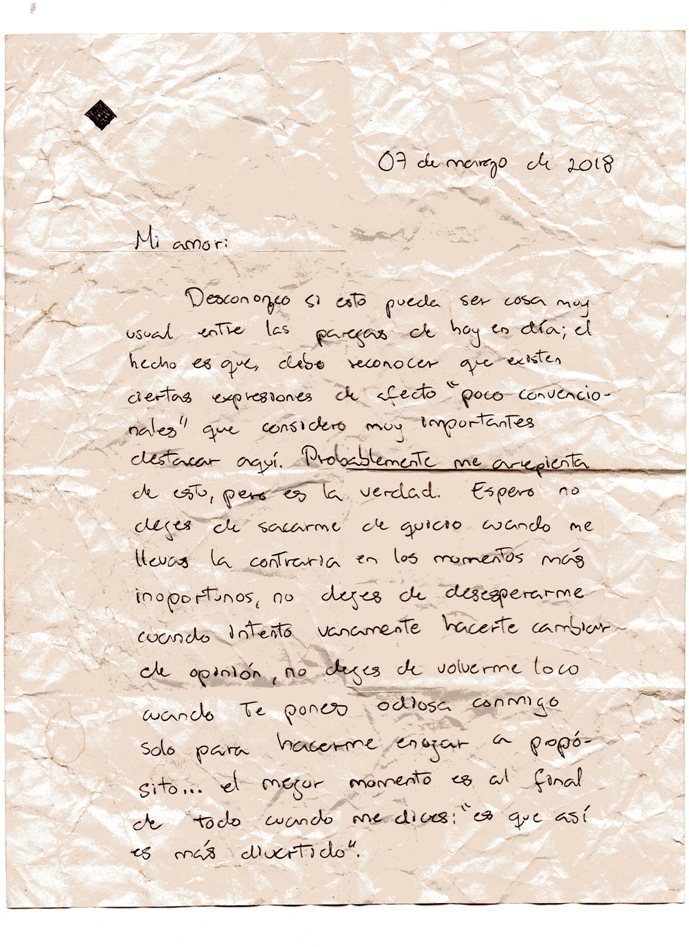 07 de marzo de 2018
Mi amor:
Desconozco si esto pueda ser cosa muy
usual entre las parejas de hoy en día; el
hecho es que, debo reconocer que existen
ciertas expresiones de afecto "poco convencio-
nales" que considero muy importantes
destacar aquí. Probablemente me arrepienta
de esto, pero es la verdad. Espero no
dejes de sacarme de quicio cuando me
llevas la contraria en los momentos más
inoportunos, no dejes de desesperarme
cuando intento vanamente hacerte cambiar
de opinión, no dejes de volverme loco
cuando te pones odiosa conmigo
solo para hacerme enojar a propó-
sito... el mejor momento es al final
de todo cuando me dices: "es que así
es más divertido".